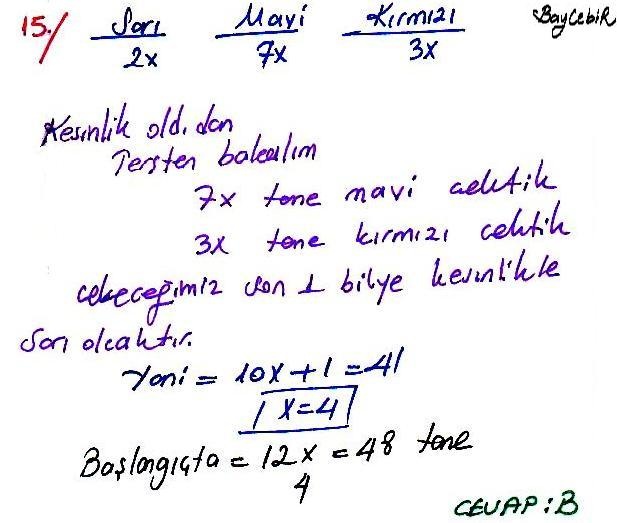 15./ Sarı Mavi Kırmızı BayCebiR
2x 7x 3x
Kesinlik old. dan
Tersten bakalım
7x tane mavi çektik
3x tane kırmızı çektik
çekeceğimiz son 1 bilye kesinlikle
Sarı olcaktır.
Yani = 10x + 1 = 41
x=4
Başlangıçta = 12x = 48 tane
4
CEVAP : B